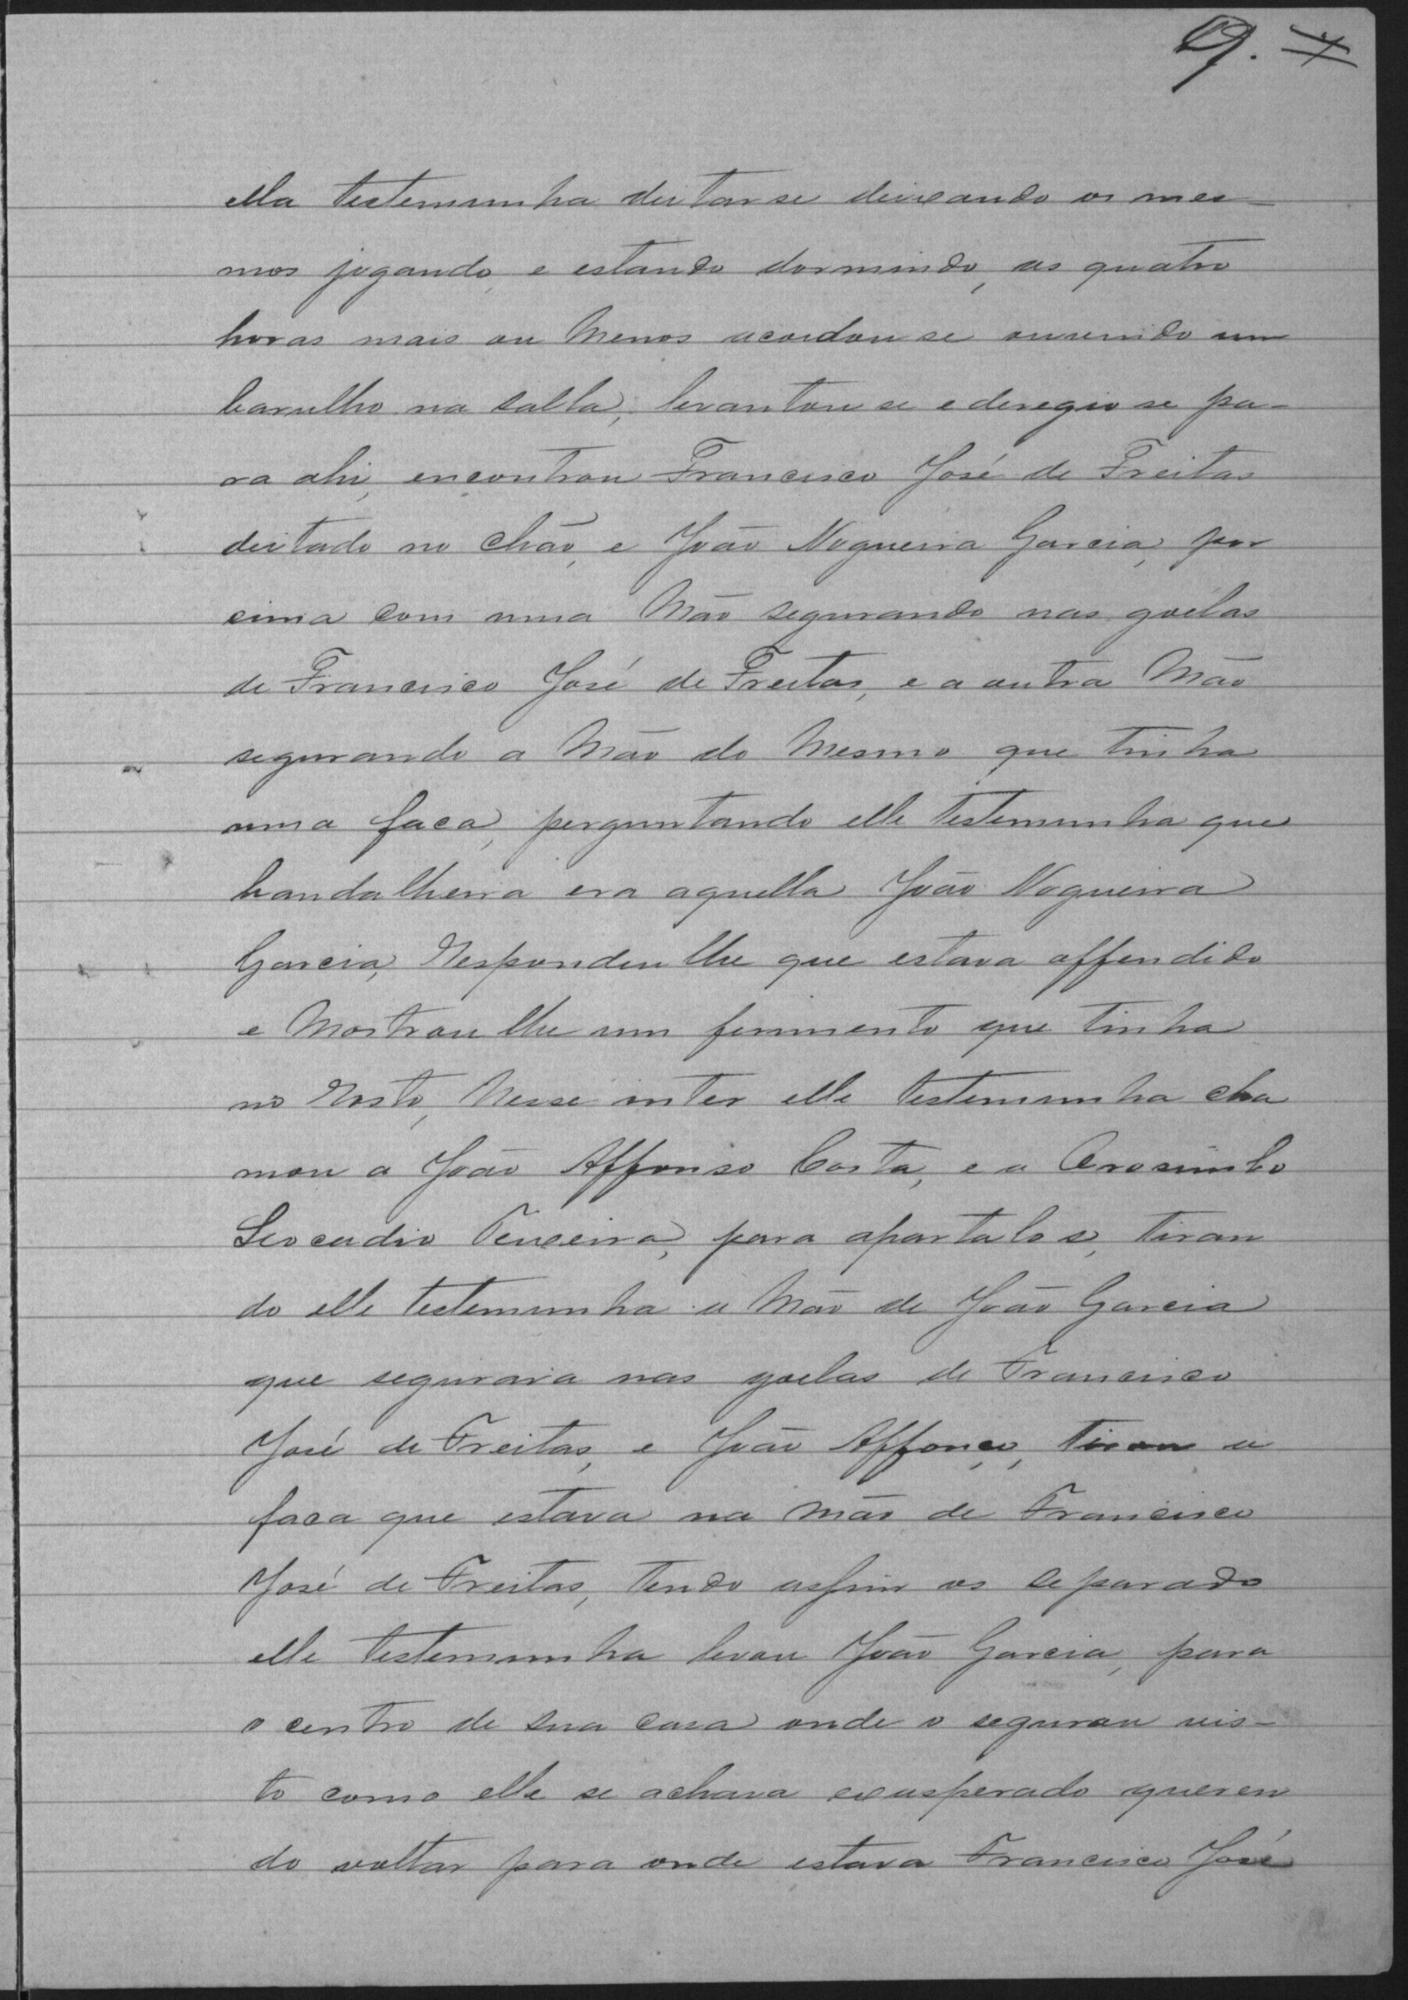 9. 7
ella testemunha deitar se deixando os mes-
mos jogando, e estando dormindo, as quatro
horas mais ou menos acordou se ouvindo um
barulho na salla, levantou se e deregio se pa-
ra ahi, encontrou Francisco José de Freitas
deitado no chão, e João Nogueira Garcia, por
cima com uma mão segurando nas guélas
de Francisco José de Freitas, e a outra mão
segurando a mão do mesmo que tinha
uma faca, perguntando elle testemunha que
bandalheira era aquella João Nogueira
Garcia, respondeu lhe que estava offendido
e mostrou lhe um ferimento que tinha
no rosto, nesse inter elle testemunha cha
mou a João Affonso Costa, e a Orosimbo
Leocadio Teixeira, para apartalos, tiran
do elle testemunha a mão de João Garcia
que segurava nas guelas de Francisco
José de Freitas, e João Affonço, tirou a
faca que estava na mão de Francisco
José de Freitas, tendo assim os separado
elle testemunha levou João Garcia, para
o centro de sua casa onde o segurou vis-
to como elle se achava exasperado queren
do voltar para onde estava Francisco José